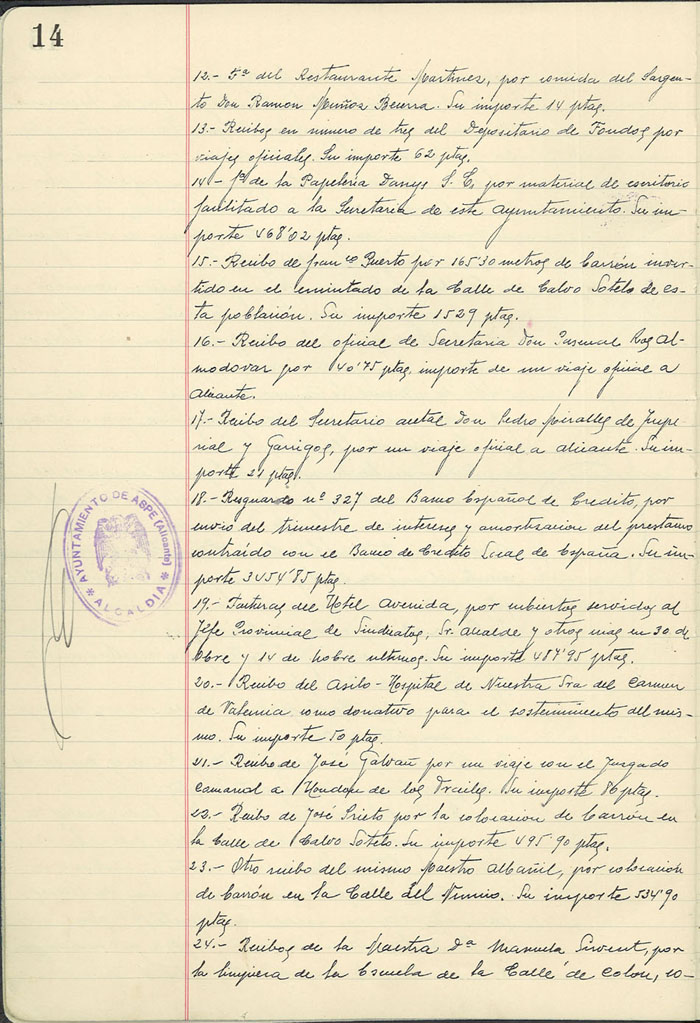 14
12.- Fª del Restaurante Martinez, por comida del Sargen-
to Don Ramon Muñoz Becerra. Su importe 14 ptas.
13.- Recibos en numero de tres del Depositario de Fondos por
viajes oficiales. Su importe 62 ptas.
14.- fª de la Papeleria Danys S. L. por material de escritorio
facilitado a la Secretaria de este Ayuntamiento. Su im-
porte 468'02 ptas.
15.- Recibo de franco Puerto por 165'30 metros de Carrón inver-
tido en el encintado de la Calle de Calvo Sotelo de es-
ta población. Su importe 1529 ptas.
16.- Recibo del oficial de Secretaria Don Pascual Al-
modovar por 40'75 ptas. importe de un viaje oficial a
Alicante.
17.- Recibo del Secretario acctal Don Pedro Miralles de Impe-
rial y Garrigos, por un viaje oficial a Alicante. Su im-
porte 21 ptas.
18.- Resguardo nº 327 del Banco Español de Credito, por
envio del trimestre de intereses y amortizacion del prestamo
contraído con el Banco de Credito Local de España. Su im-
porte 3454'85 ptas.
AYUNTAMIENTO DE ASPE (Alicante)
* ALCALDIA *
19.- Facturas del Hotel Avenida, por cubiertos servidos al
Jefe Provincial de Sindicatos, Sr. Alcalde y otros mas en 30 de
8bre y 14 de nobre ultimos. Su importe 487'95 ptas.
20.- Recibo del Asilo-Hospital de Nuestra Sra del Carmen
de Valencia como donativo para el sostenimiento del mis-
mo. Su importe 50 ptas.
21.- Recibo de José Galvañ por un viaje con el Juzgado
Comarcal a Hondon de los Frailes. Su importe 86 ptas.
22.- Recibo de José Prieto por la colocacion de Carrón en
la Calle de Calvo Sotelo. Su importe 495'90 ptas.
23.- Otro recibo del mismo Maestro Albañil, por colocacion
de Carrón en la Calle del Nuncio. Su importe 534'90
ptas.
24.- Recibos de la Maestra Dª Manuela Sirvent, por
la limpieza de la Escuela de la Calle de Colon, co-